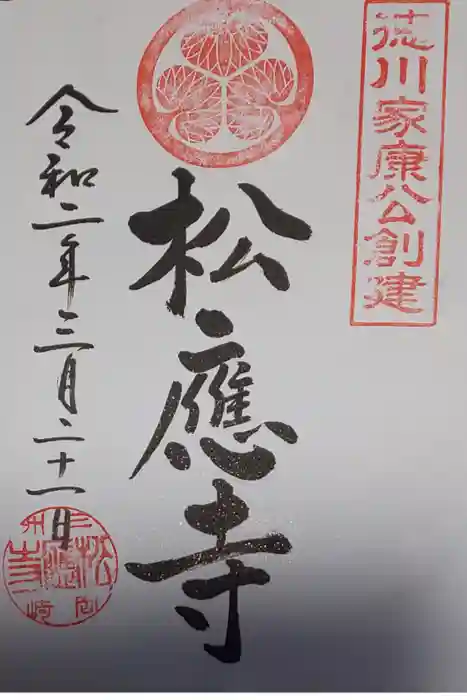 徳川家康公創建
松應寺
令和二年三月二十一日
三州
松應寺
岡崎